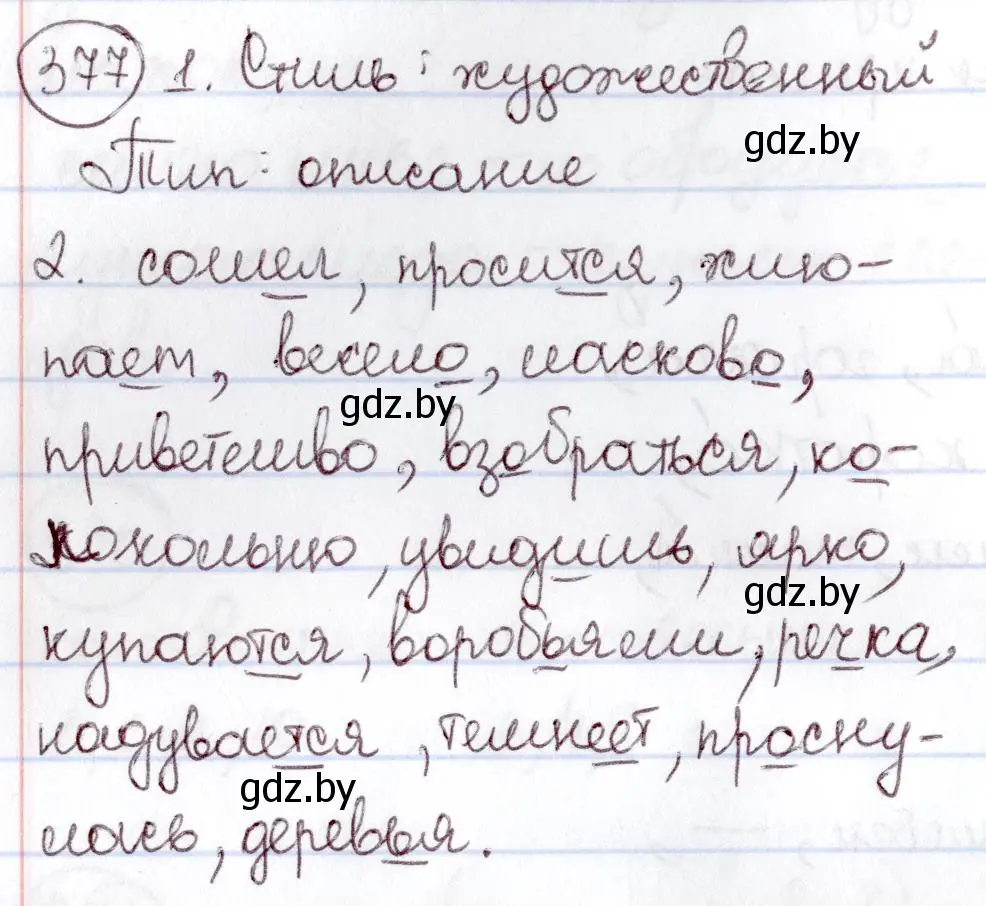 377 1. Стиль: художественный
gdz.by
Тип: описание
2. сошел, просится, хлю-
пает, весело, ласково,
gdz.by
приветливо, взобраться, ко-
локольню, увидишь, ярко,
gdz.by
купаются, воробьями, речка,
надувается, темнеет, просну-
gdz.by
лась, деревья.